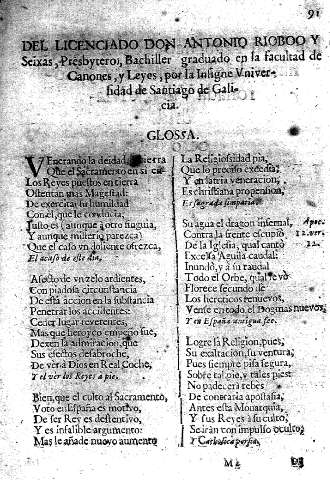 91
DEL LICENCIADO DON ANTONIO RIOBOO Y
Seixas, Presbytero, Bachiller graduado en la facultad de
Canones, y Leyes, por la Insigne Vniver-
sidad de Santiago de Gali-
cia.
GLOSSA.
VEnerando la deidad,
Que el Sacramento en si
Los Reyes puestos en tierra
Ostentan mas Magestad:
De exercita su humildad
Con el, que le conducia;
Iusto es (aunque otro huguia,
Y aunque misterio parezca)
Que el caso vn doliente ofrezca,
El acaso de este dia.
Afecto de vn zelo ardientes,
Con piadosa circunstancia
De esta accion en la substancia
Penetrar los accidentes:
Ceder lugar reverentes,
Mas que heroyco empleo fue,
Dexen la admiracion, que
Sus efectos desabroche,
De ver à Dios en Real Coche,
Y el ver los Reyes à pie.
Bien, que el culto al Sacramento,
Voto en España es motivo,
De ser Rey es
Y es infalible argumento:
Mas le añade nuevo aumento
La Religiosidad pia,
Que lo preciso excedia;
Y en satria veneracion,
Es christiana propension,
Es sagrada simpatia.
Su agua el dragon infernal,
Contra la frente escupiò
De la Iglesia, qual cantò
Excelsa Aguila caudal:
Inundò, y a su raudal
Todo el Orbe, qual se vò
Florece secundo
Los hereticos renuevos,
Vense en todo el Dogmas nuevos
Y en España antigua fee.
Apoc.
12. ver.
Logre la Religion, pues,
Su exaltacion, su ventura;
Pues siempre pisa segura,
Sobre tal pie, y tales pies:
No padecerà
De contraria apostasia,
Antes esta Monarquia,
Y sus Reyes à su culto,
Seràn con impulso oculto;
Y Catholica porfia,
M